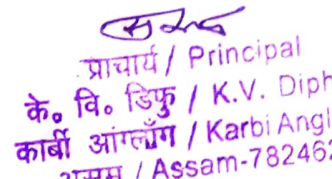 प्राचार्य / Principal
के. वि. डिफु / K.V. Diph
कार्बी आंग्लौंग / Karbi Angl
असम / Assam-782462